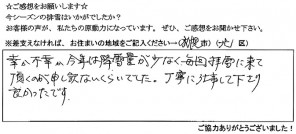 ☆ご感想をお願いします☆
今シーズンの排雪はいかがでしたか?
お客様の声が、私たちの原動力になっています。ぜひ、ご感想をお聞かせ下さい。
※差支えなければ、お住まいの地域をご記入ください→(札幌市)( 区)
幸か不幸か、今年は降雪量が少なく毎回排雪に来て
頂くのが申し訳ないくらいでした。丁寧に仕事して下さり
良かったです。
ご協力ありがとうございました!